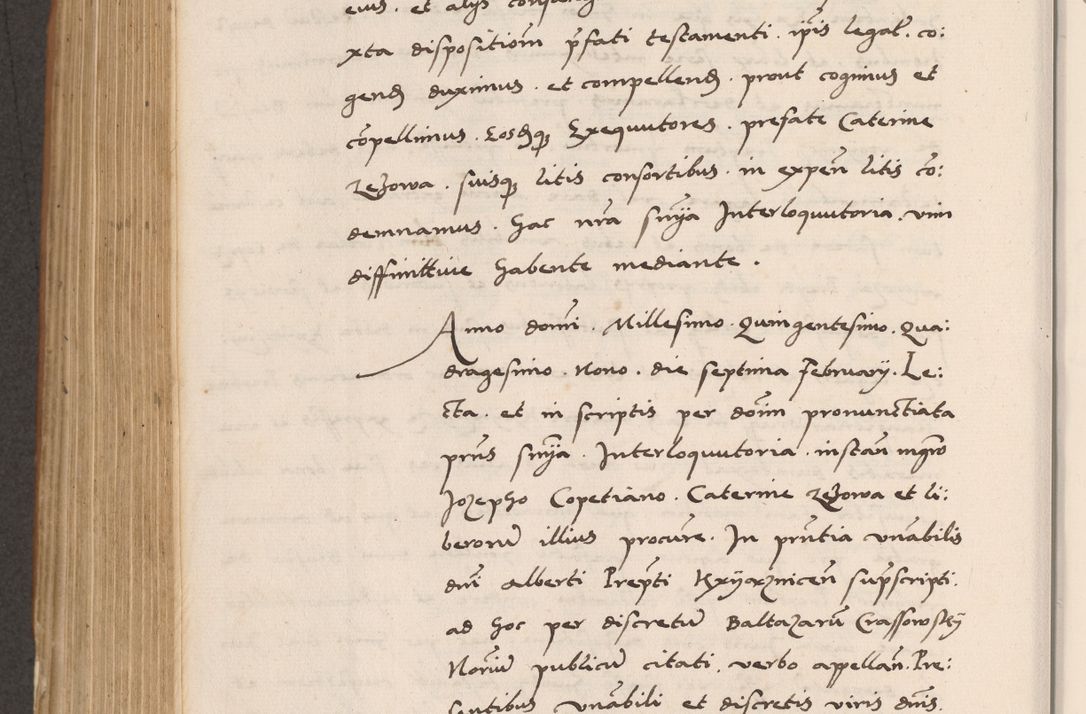 eius. et alijs
xta dispositiom p̃fati testamenti. ip̃is legat̃. co:
gend̃ duximus. et compellend̃. prout cogimus et
cõpellimus. Eosdq̃ Exequutores. prefate Caterine
suisq̃ litis consortibus. in expeñ litis cõ:
demnamus. hac nr̃a snĩa Interloquutoria. vim
diffinittiue habente mediante.
Anno domĩ. Millesimo. Quingentesimo. Qua:
dragesimo. Nono. die septima February. Le:
cta. et in scriptis per dom̃ pronunctiata
prñs snĩa. Interloquutoria. instañ mgr̃o
Jozepho Copetiano. Caterine et li:
berorũ illius procũre. In prñtia vnãbilis
dnĩ Alberti Prep̃ti sup̃scripti.
ad hoc per discretũ Baltazarũ Crassowsky
Norĩũ publicũ citati. verbo appellañ. Pre:
sentibus vnãbili et discretis viris dnĩs.